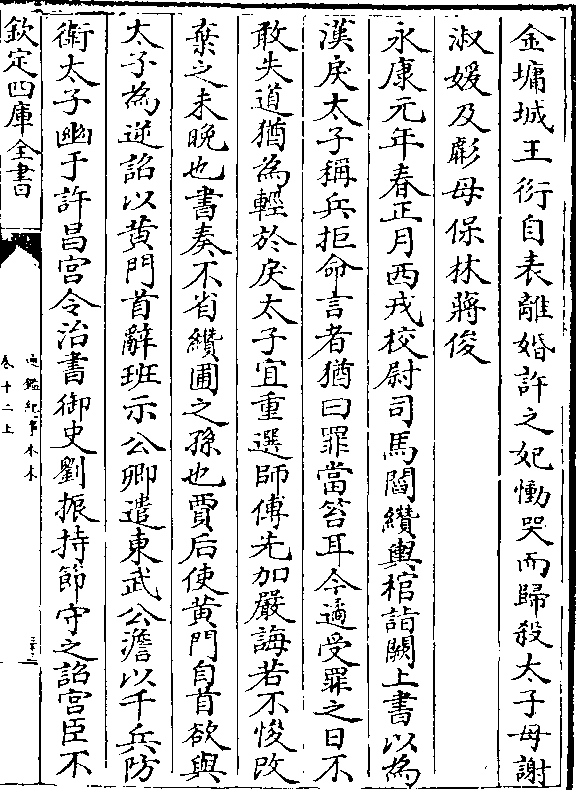 金墉城王衍自表離婚許之妃慟哭而歸殺太子母謝
淑媛及彪母保林蔣俊
永康元年春正月西戎校尉司馬閻纘輿棺詣闕上書以為
漢戾太子稱兵拒命言者猶曰罪當笞耳今遹受罪之日不
敢失道猶為輕於戾太子宜重選師傅先加嚴誨若不悛改
棄之未晚也書奏不省纘圃之孫也賈后使黄門自首欲與
太子為逆詔以黄門首辭班示公卿遣東武公澹以千兵防
衛太子幽于許昌宫令治書御史劉振持節守之詔宫臣不
欽定四庫全書
通鑑紀事本末
卷十二上